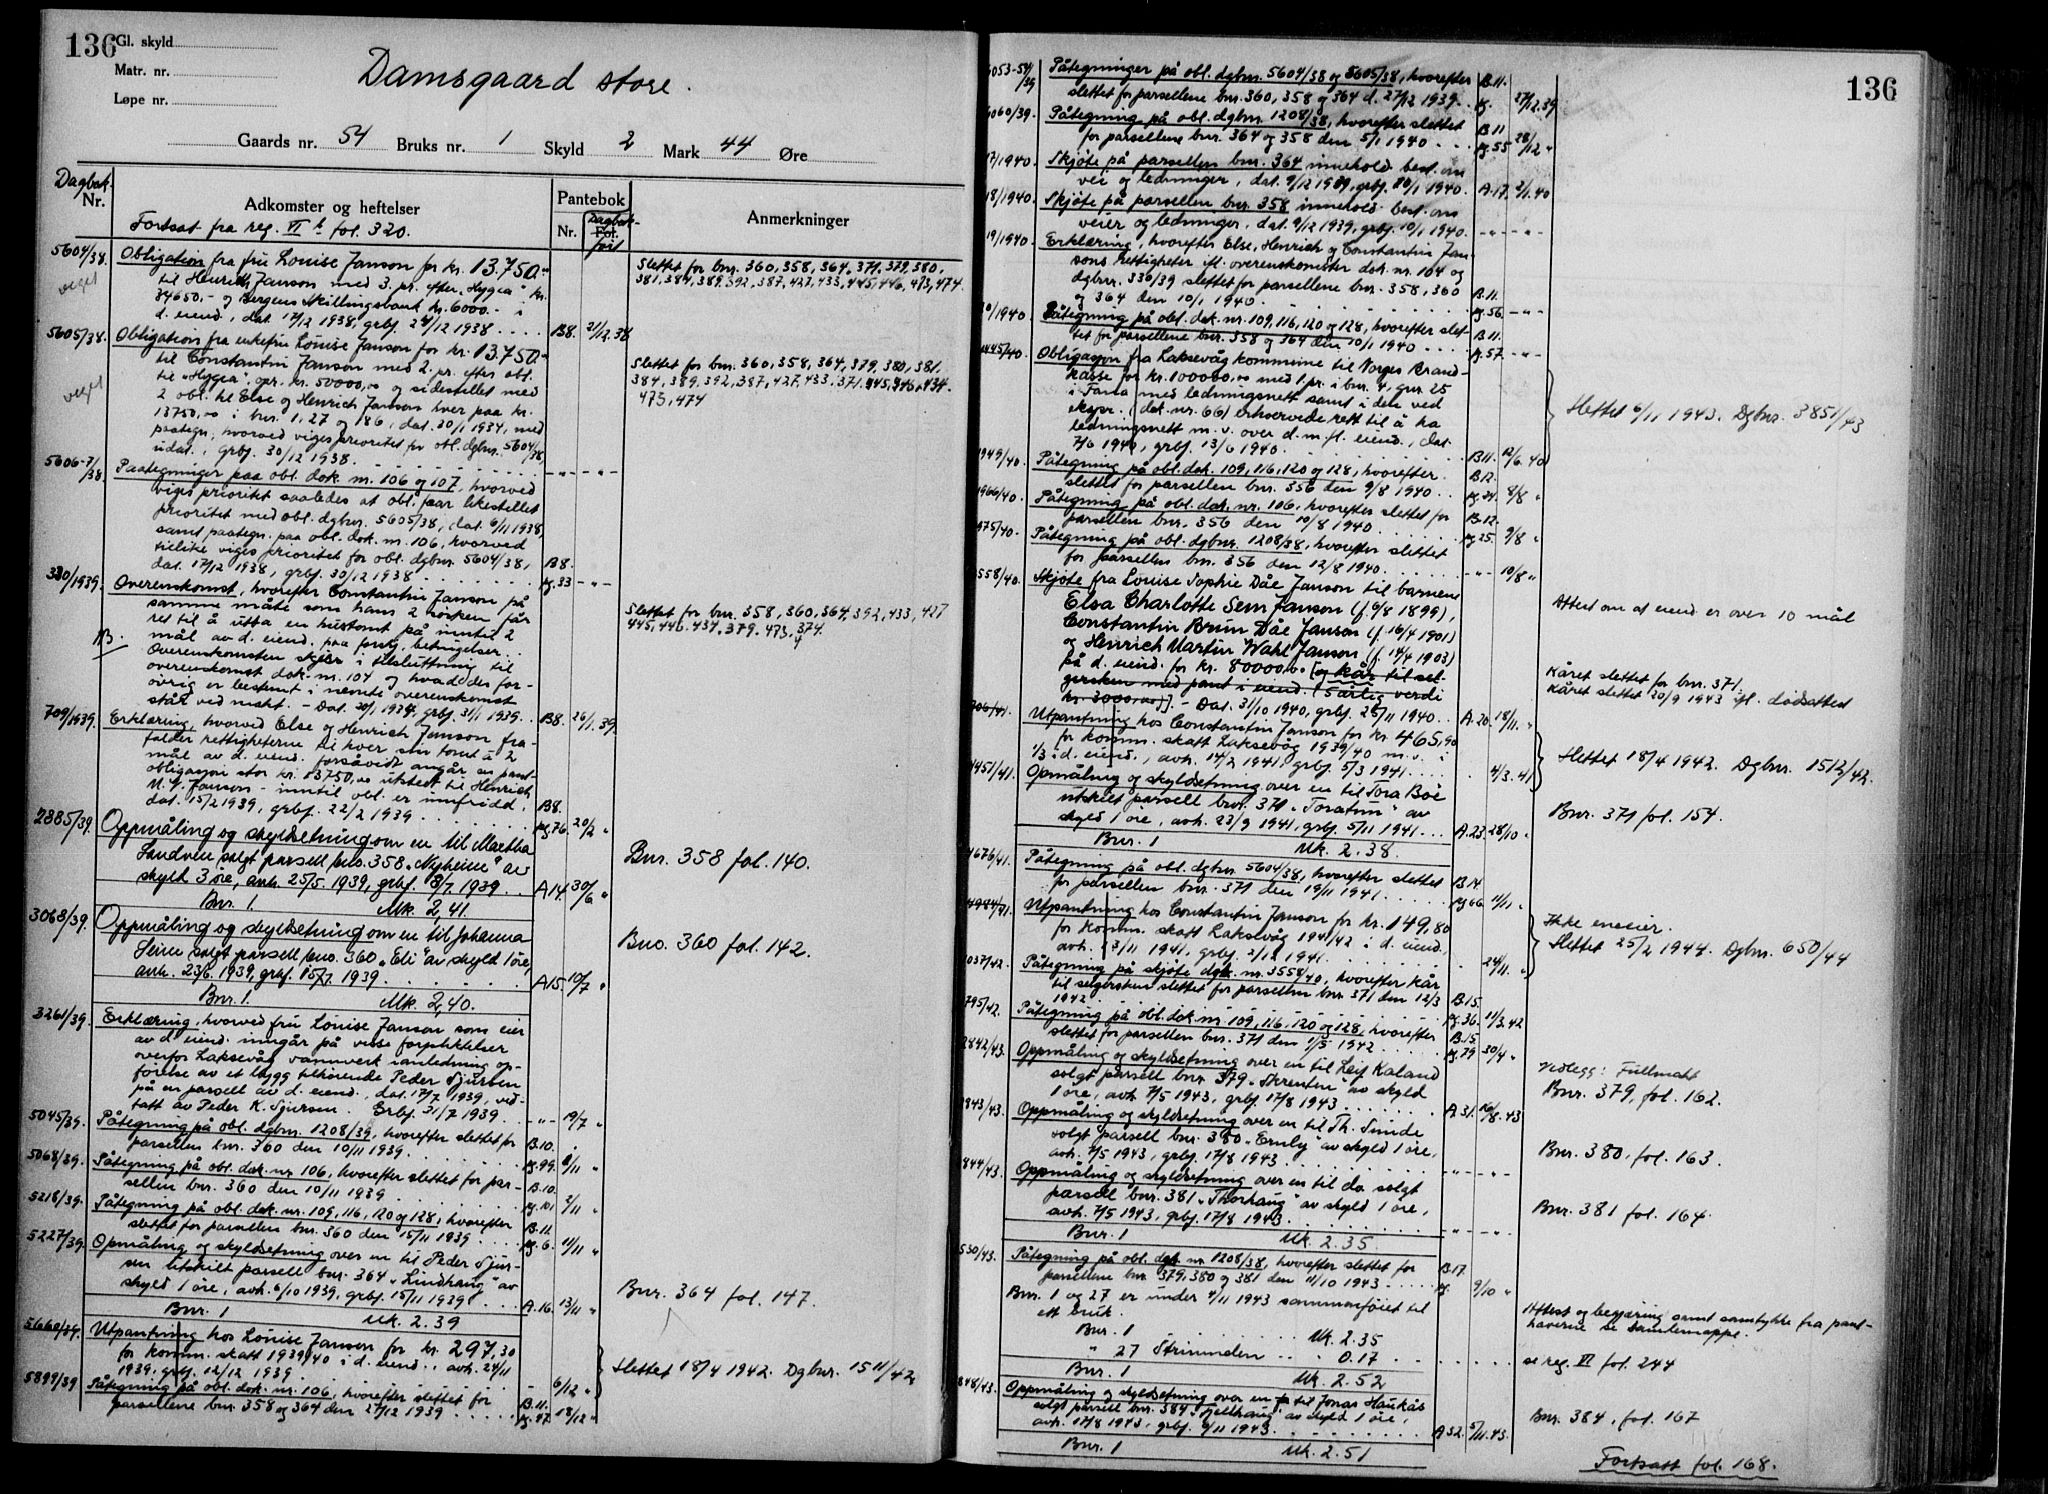 136
Gl. skyld
Matr. nr.
Løpe nr.
Damsgaard store.
Gaards nr. 54 Bruks nr. 1 Skyld 2 Mark 44 Øre
Dagbok
Nr.
Adkomster og heftelser
Pantebok
Nr. Fol.
Dagbok
ført
Anmerkninger
Fortsat fra reg. VI fol. 320.
5604/38.
viget
Obligation fra fru Louise Janson for kr. 13.750.-
til Henrich Janson med 3. pr. efter "Hygea" kr.
34650,- og Bergens Skillingsbank kr. 6000.- i
d. eiend., dat. 17/12 1938, grbf. 24/12 1938 B8. 21/12.38
Slettet for bnr. 360, 358, 364, 371, 379, 380,
381, 384, 389, 392, 387, 427, 433, 445, 446, 473, 474.
5605/38.
viget
Obligation fra enkefru Louise Janson for kr. 13.750.-
til Constantin Janson med 2. pr. efter obl.
til "Hygea", opr. kr. 50000,00 og sidestillet med
2 obl. til Else og Henrich Janson hver paa kr.
13750,00 i bnr. 1, 27 og 186, dat. 20/1 1934, med
paategn. hvorved viges prioritet for obl. dgbnr. 5604/38,
udat., grbf. 30/12 1938.
Slettet for bnr. 360, 358, 364, 379, 380, 381,
384, 389, 392, 387, 427, 433. 371. 445, 446, 434.
473, 474
5606-7/38
Paategninger paa obl. dok. nr. 106 og 107, hvorved
viges prioritet saaledes at obl. faar likestillet
prioritet med obl. dgbnr. 5605/38, dat. 6/11 1938,
samt paategn. paa obl. dok. nr. 106, hvorved
tillike viges prioritet for obl. dgbnr. 5604/38,
dat. 17/12 1938, grbf. 30/12 1938 B8. pg.33 -"-
330/1939.
NB.
Overenskomst, hvorefter Constantin Janson på
samme måte som hans 2 søsken får
ret til å utta en hustomt på inntil 2
mål av d. eiend. paa forsk. betingelser.
Overenskomsten skjer i tilslutning til
overenskomst dok. nr. 104 og hvad der for-
øvrig er bestemt i nevnte overenskomst
står ved makt. - Dat. 20/1 1934, grbf. 31/1 1939. B8. 26/1.39
Slettet for bnr. 358, 360, 364, 392, 433, 427
445, 446. 434. 379. 473, 374.
709/1939.
Erklæring, hvorved Else og Henrich Janson fra-
falder rettigheterne til hver sin tomt à 2
mål av d. eiend. forsåvidt angår en pant-
obligasjon stor kr. 13750,00 utstedt til Henrich
M. W. Janson - inntil obl. er innfridd.
dat. 15/2 1939, grbf. 22/2 1939 B8. pg.76. 20/2 "
2885/39.
Oppmåling og skyldsetning om en til Martha
Sandven solgt parsell bno. 358 "Nyheim" av
skyld 3 øre, avh. 25/5. 1939, grbf. 8/7. 1939 A14. 30/6 "
Bnr. 1. Mk. 2,41.
Bnr. 358 fol. 140.
3068/39.
Oppmåling og skyldsetning om en til Johanna
Seim solgt parsell bno. 360 "Eli" av skyld 1 øre,
avh. 23/6. 1939, grbf. 15/7. 1939 A15. 10/7 "
Bnr. 1. Mk. 2,40.
Bno. 360 fol. 142.
3261/39.
Erklæring, hvorved fru Louise Janson som eier
av d. eiend. inngår på visse forpliktelser
overfor Laksevåg vannverk i anledning op-
førelse av et bygg tilhørende Peder Sjursen
på en parsell av d. eiend., dat. 17/7 1939, ved-
tatt av Peder K. Sjursen. Grbf. 31/7 1939 -"- 19/7 "
5045/39.
Påtegning på obl. dgbnr. 1208/39, hvorefter slettet for
parsellen bnr. 360 den 10/11 1939 B.10. pg.99. 8/11 "
5068/39.
Påtegning på obl. dok. nr. 106, hvorefter slettet for par-
sellen bnr. 360 den 10/11 1939 B.10. pg.101. 2/11 "
5218/39.
Påtegning på obl. dok. nr. 109, 116, 120 og 128, hvorefter
slettet for parsellen bnr. 360 den 15/11 1939 B.11. pg.6. 11/11 "
5227/39.
Opmåling og skyldsetning over en til Peder Sjur-
sen utskilt parsell bnr. 364 "Lindhaug" av
skyld 1 øre, avh. 6/10 1939, grbf. 15/11 1939 A.16. 13/11 "
Bnr. 1 Mk. 2.39
Bnr. 364 fol. 147.
5660/39.
Utpantning hos Louise Janson for kr. 297,30
for komm. skatt 1939/40 i d. eiend., avh. 24/11
1939, grbf. 12/12 1939 6/12 "
Slettet 18/4 1942. Dgbnr. 1511/42
5899/39
Påtegning på obl. dok. nr. 106, hvorefter slettet for
parsellene bnr. 358 og 364 den 27/12 1939 B.11. pg.47. 18/12 "
136
6053-54/39
Påtegninger på obl. dgbnr. 5604/38 og 5605/38, hvorefter
slettet for parsellene bnr. 360, 358 og 364 d. 27/12 1939. B.11. pg. 27/12.39
6060/39.
Påtegning på obl. dgbnr. 1208/38, hvorefter slettet
for parsellene bnr. 364 og 358 den 5/1 1940 B.11 pg.55 28/12 "
17/1940.
Skjøte på parsellen bnr. 364 innehold. best. om
vei og ledninger, dat. 9/12 1939, grbf. 10/1 1940. A.17. 2/1.40
18/1940.
Skjøte på parsellen bnr. 358 innehold. best. om
veier og ledninger, dat. 9/12 1939, grbf. 10/1 1940. -"- -"-
19/1940.
Erklæring, hvorefter Else, Henrich og Constantin Jan-
sons rettigheter ifl. overenskomster dok. nr. 104 og
dgbnr. 330/39 slettet for parsellene bnr. 358, 360
og 364 den 10/1 1940. B.11. pg.56. -"-
20/1940.
Påtegning på obl. dok. nr. 109, 116, 120 og 128, hvorefter slet-
tet for parsellene bnr. 358 og 364 den 10/1 1940 B.11. pg.57. -"-
1445/40.
Obligasjon fra Laksevåg kommune til Norges Brand-
kasse for kr. 100000,00 med 1 pr. i bnr. 4, gnr. 25
i Fana med ledningsnett samt i den ved
ekspr. (dok. nr. 66) erhvervede rett til å ha
ledningsnett m. v. over d. m. fl. eiend., dat.
7/6 1940, grbf. 13/6 1940. B.11. 12/6.40
Slettet 6/11 1943. Dgbnr. 3851/43
1949/40.
Påtegning på obl. dok. 109, 116, 120 og 128, hvorefter
slettet for parsellen bnr. 356 den 9/8 1940 B.12. pg.24. 8/8 "
1966/40.
Påtegning på obl. dok. nr. 106, hvorefter slettet for
parsellen bnr. 356 den 10/8 1940 B.12. pg.25. 9/8 "
1975/40.
Påtegning på obl. dgbnr. 1208/38, hvorefter slettet
for parsellen bnr. 356 den 12/8 1940. -"- 10/8 "
3558/40.
Skjøte fra Louise Sophie Dåe Janson til barnene
Elsa Charlotte Sem Janson (f. 6/8 1899),
Constantin Brun Dåe Janson (f. 16/4 1901)
og Henrich Martin Wahl Janson (f. 14/4 1903)
på d. eiend. for kr. 80000,00 [og kår til sel-
gersken med pant i eiend. (5 årlig verdi
kr. 3000,00)]. - Dat. 31/10 1940, grbf. 25/11 1940. A.20. 18/11. "
Attest om at eiend. er over 10 mål
Kåret slettet for bnr. 371.
Kåret slettet 20/9 1943 ifl. dødsattest
706/41.
Utpantning hos Constantin Janson for kr. 465,90
for komm. skatt Laksevåg 1939/40 m. v. i
1/3 i d. eiend., avh. 14/2 1941, grbf. 5/3 1941 4/3.41
Slettet 18/4 1942. Dgbnr. 1512/42.
4451/41.
Opmåling og skyldsetning over en til Tora Bøe
utskilt parsell bnr. 371 "Toratun" av
skyld 1 øre, avh. 23/9 1941, grbf. 5/11 1941 A.23. 28/10 "
Bnr. 1 Mk. 2.38.
Bnr. 371 fol. 154.
4676/41.
Påtegning på obl. dgbnr. 5604/38, hvorefter slettet
for parsellen bnr. 371 den 19/11 1941 B.14. pg.66. 11/11 "
4984/41.
Utpantning hos Constantin Janson for kr. 149,80
for komm. skatt Laksevåg 1941/42 i d. eiend.
avh. 13/11 1941, grbf. 2/12 1941. 24/11. "
Ikke eneeier.
Slettet 25/2 1944. Dgbnr. 650/44
1037/42.
Påtegning på skjøte dgb. nr. 3558/40, hvorefter kår
til selgersken slettet for parsellen bnr. 371 den 12/3
1942 B.15. pg.36. 11/3.42
1795/42.
Påtegning på obl. dok. nr. 109, 116, 120 og 128, hvorefter
slettet for parsellen bnr. 371 den 1/5 1942 B.15. pg.79 30/4 "
2842/43.
Oppmåling og skyldsetning over en til Leif Kaland
solgt parsell bnr. 379 "Skrenten" av skyld
1 øre, avh. 7/5 1943, grbf. 17/8 1943 A 31. 16/8.43
Vedlegg: Fullmakt
Bnr. 379, fol. 162.
2843/43.
Oppmåling og skyldsetning over en til Th. Sunde
solgt parsell bnr. 380 "Ernly" av skyld 1 øre,
avh. 7/5 1943, grbf. 17/8 1943 -"- -"-
Bnr. 380, fol. 163.
2844/43.
Oppmåling og skyldsetning over en til do. solgt
parsell bnr. 381 "Thorhaug" av skyld 1 øre,
avh. 7/5 1943, grbf. 17/8 1943. -"- -"-
Bnr. 1 Mk. 2.35.
Bnr. 381 fol. 164.
3530/43.
Påtegning på obl. dgb. nr. 1208/38, hvorefter slettet for
parsellene bnr. 379, 380 og 381 den 11/10 1943 B.17. pg. 9/10 "
Bnr. 1 og 27 er under 4/11 1943 sammenføiet til
ett bruk.
Bnr. 1 Mk. 2.35
" 27 Strimmelen " 0.17
Bnr. 1 Mk. 2.52
Attest og begjæring samt samtykke fra pant-
haverne se samlemappe.
se reg. VI fol. 244
3848/43.
Oppmåling og skyldsetning over en til Jonas Haukås
solgt parsell bnr. 384 "Fjellhaug" av skyld 1 øre,
avh. 17/8 1943, grbf. 6/11 1943. A 32. 5/11.43.
Bnr. 1 Mk. 2.51
Bnr. 384, fol. 167
Fortsatt fol. 168.